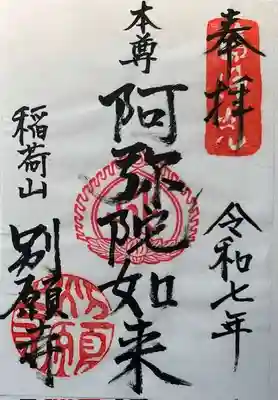 奉拝
令和七年
本尊
阿弥陀如来
稲荷山
別願寺